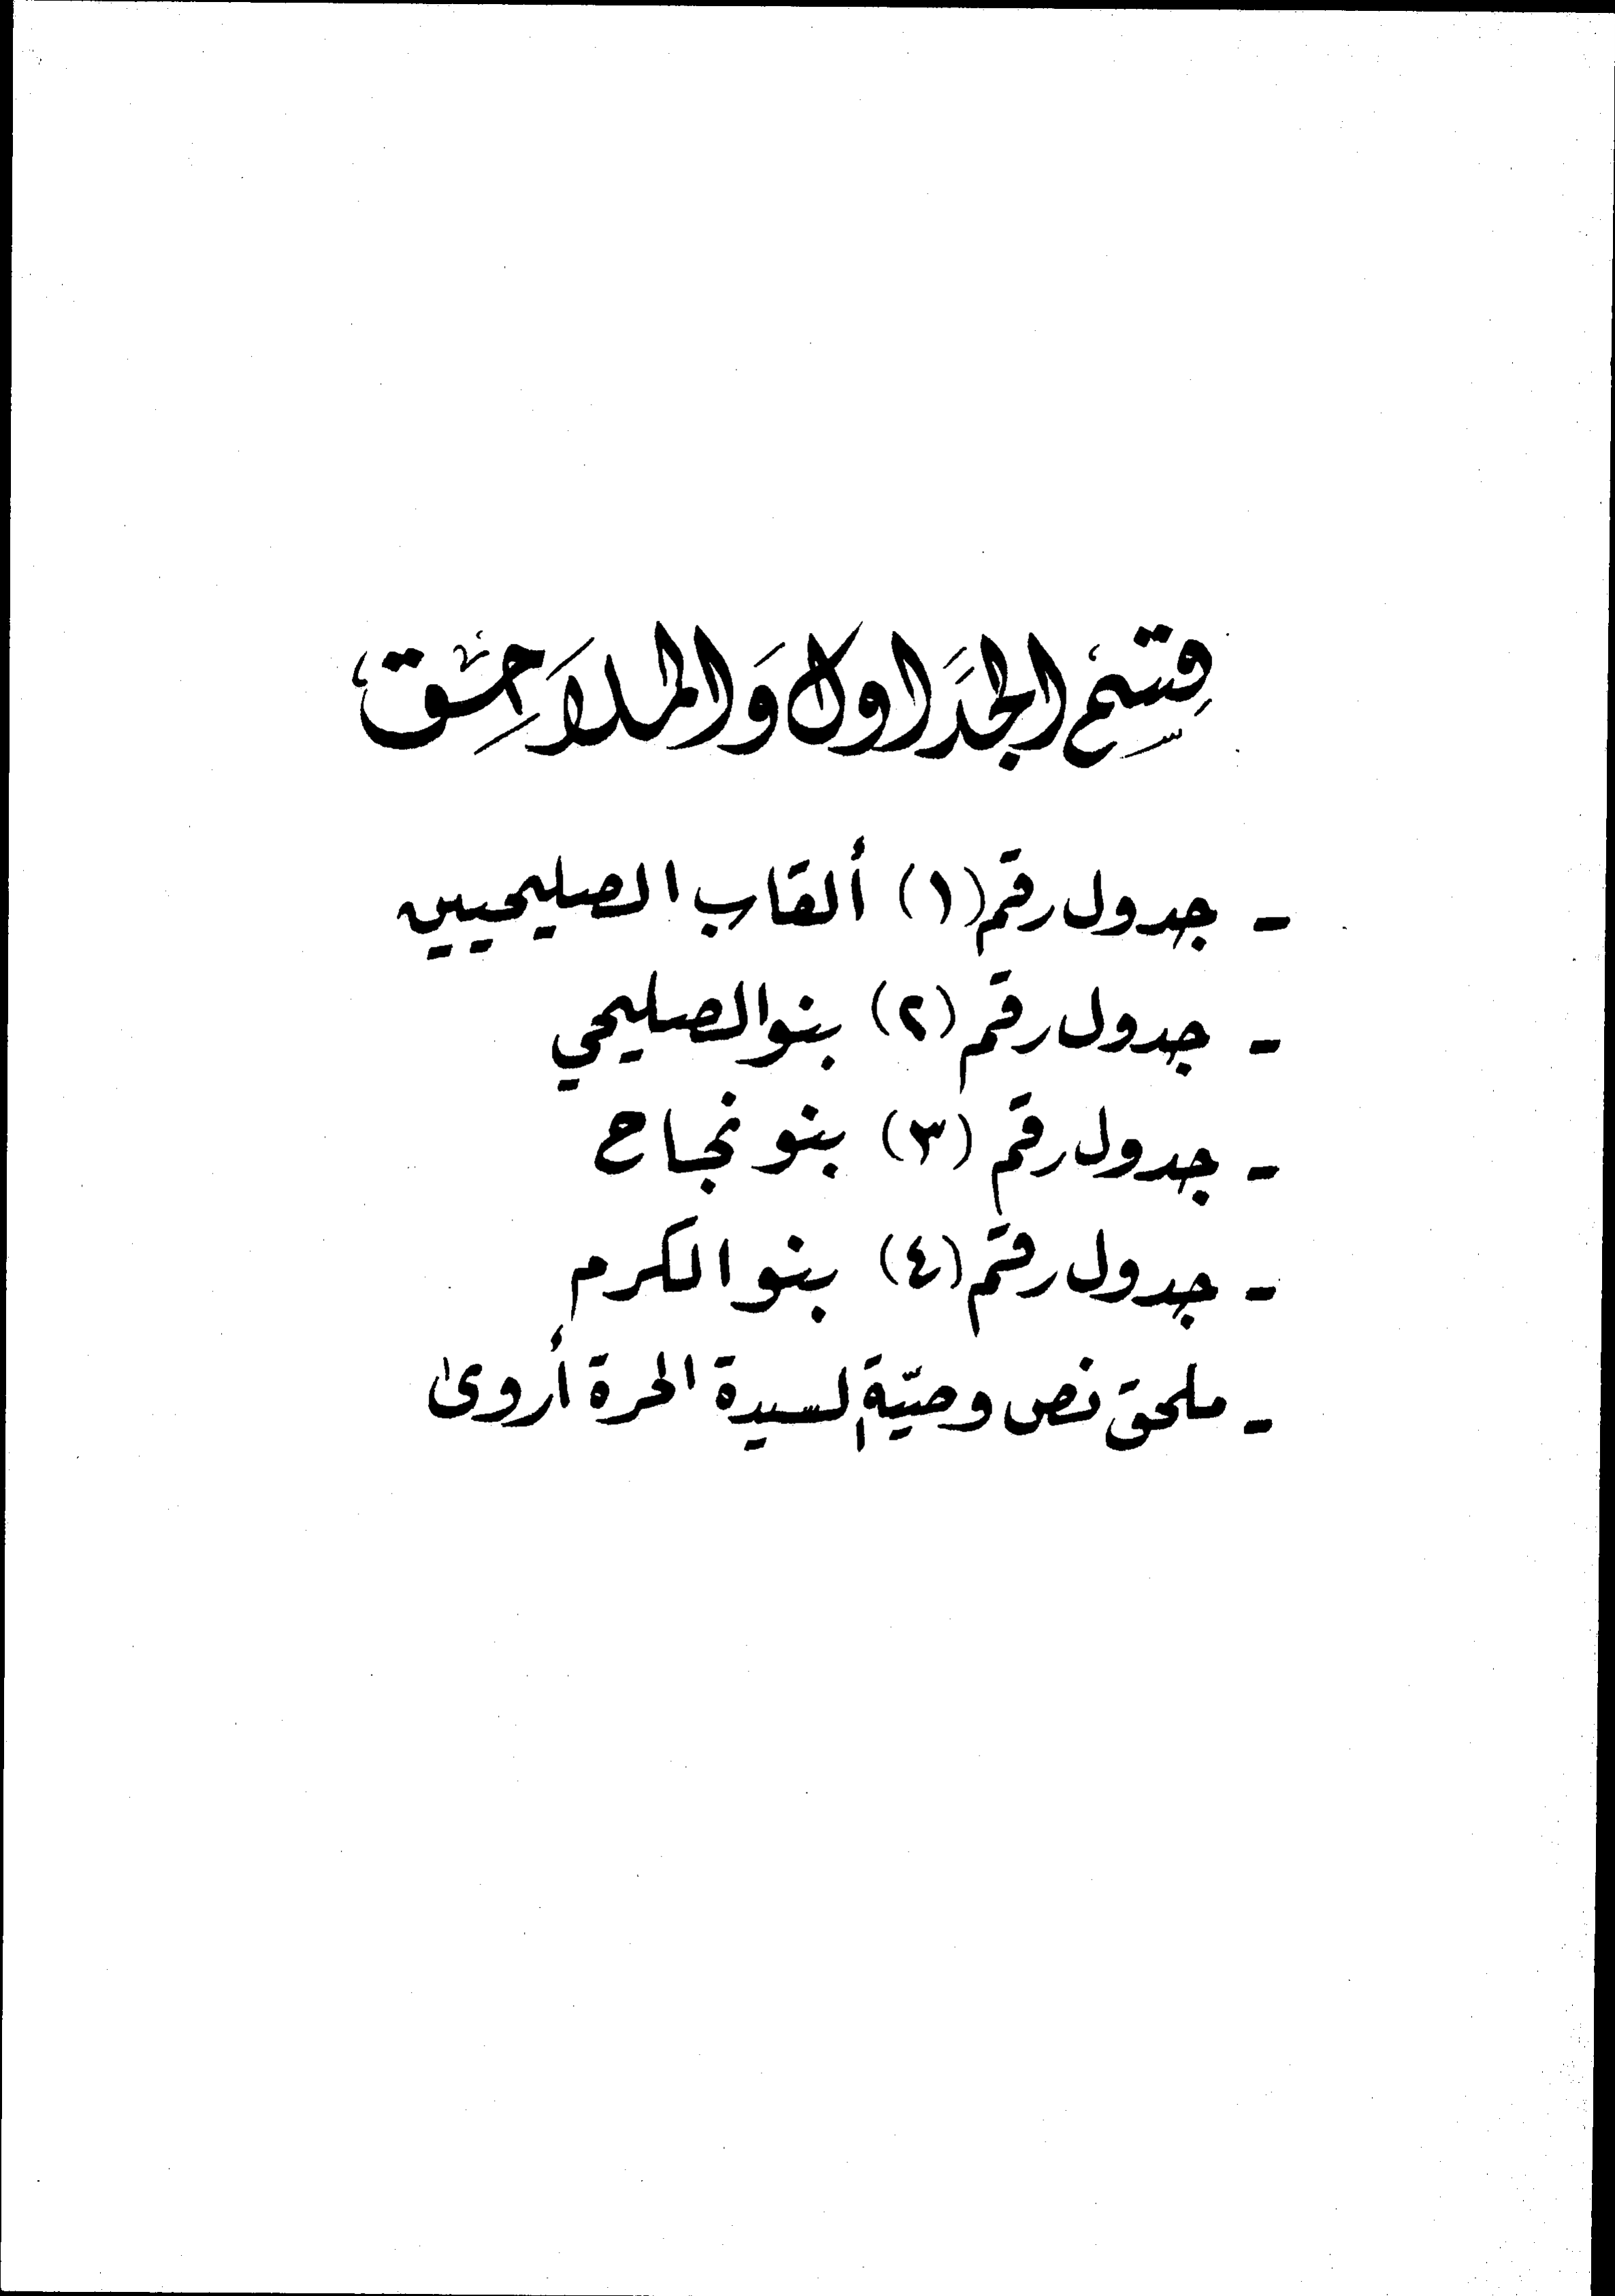 قِسْم الجَداول وَالملاَحِق
- جدول رقم (١) ألقاب الصليحيين
- جدول رقم (٢) بنو الصليحي
- جدول رقم (٣) بنو نجاح
- جدول رقم (٤) بنو الكرم
- ملحق نص وصيّة السيدة الحرة أروى